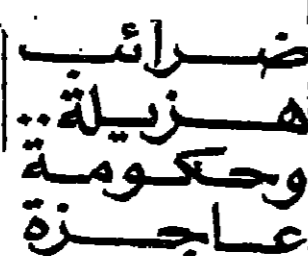 ضرائب
هزيلة..
وحكومة
عاجزة